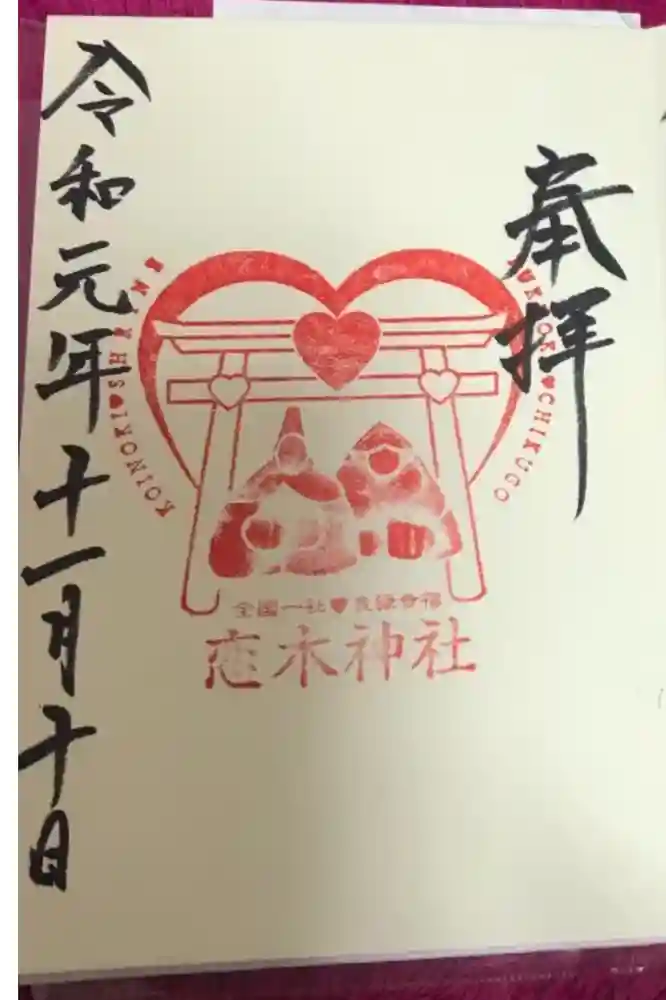 奉拝
FUKUOKA♥CHIKUGO
KOINOKI♥SHRINE
全国一社♥良縁幸福
恋木神社
令和元年十一月十日